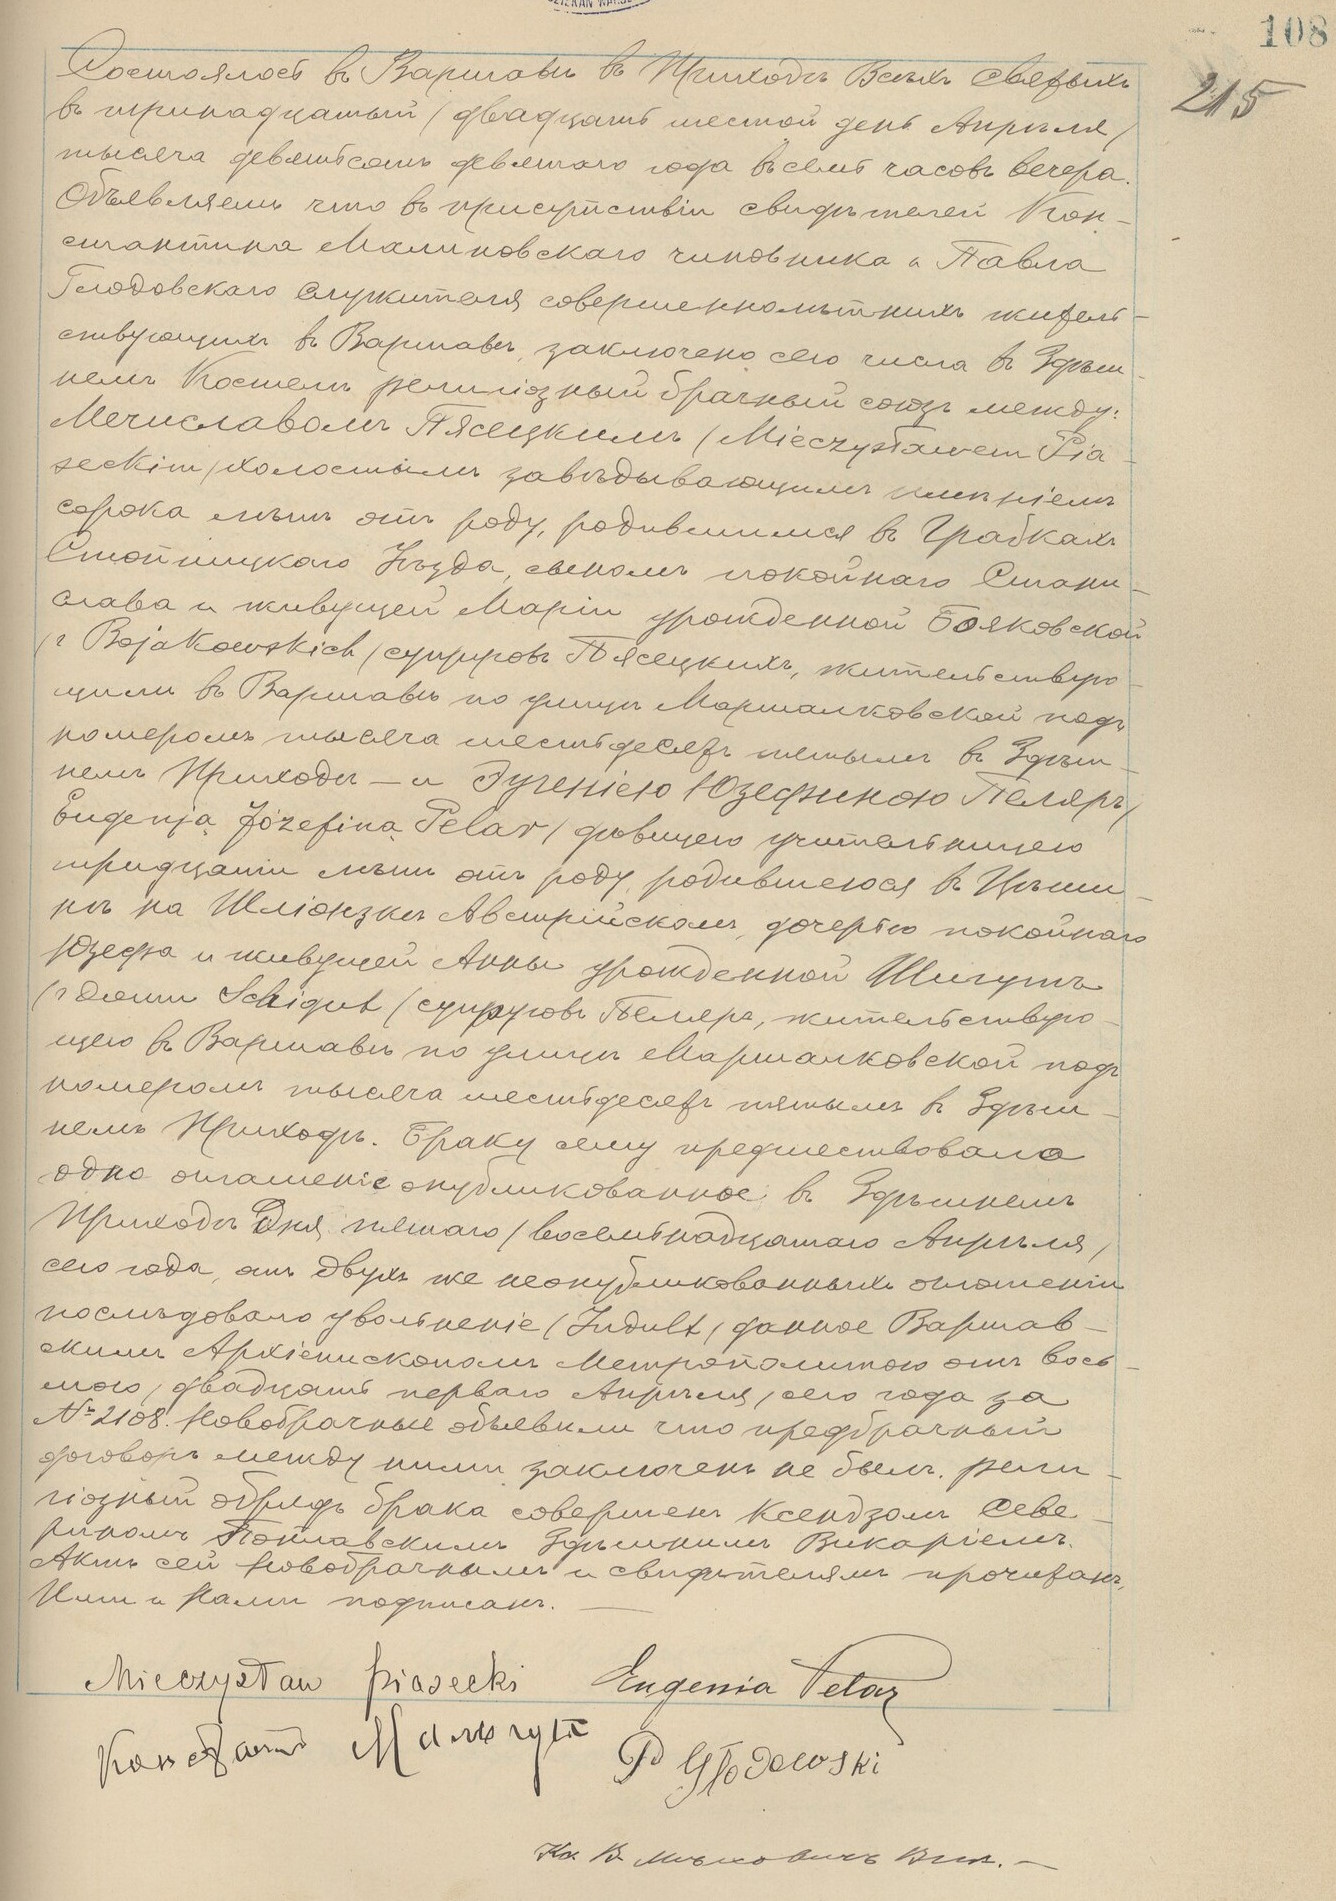 108
215
Состоялось въ Варшавѣ въ Приходѣ Всѣхъ Святыхъ
въ тринадцатый / двадцать шестой день Апрѣля /
тысяча девятьсотъ девятаго года въ семь часовъ вечера.
Объявляемъ что въ присутствіи свидѣтелей Кон-
стантина Малиновскаго чиновника и Павла
Глодовскаго служителя совершеннолѣтнихъ житель-
ствующихъ въ Варшавѣ, заключено сего числа въ Здѣш-
немъ Костелѣ религіозный брачный союзъ между:
Мечиславомъ Пясецкимъ / Mieczysławem Pia-
seckim / холостымъ завѣдывающимъ имѣніемъ
сорока лѣтъ отъ роду, родившимся въ Грабкахъ
Стопницкаго Уѣзда, сыномъ покойнаго Стани-
слава и живущей Маріи урожденной Бояковской
/ z Bojakowskich / супруговъ Пясецкихъ, жительствую-
щимъ въ Варшавѣ по улицѣ Маршалковской подъ
номеромъ тысяча шестьдесятъ пятымъ въ Здѣш-
немъ Приходѣ — и Эугеніею Юзефиною Пеляръ /
Eugenją Józefiną Pelar / дѣвицею учительницею
тридцати лѣтъ отъ роду, родившеюся въ Цѣши-
нѣ на Шліонзку Австрійскомъ, дочерью покойнаго
Юзефа и живущей Анны урожденной Шигутъ
/ z domu Schigut / супруговъ Пеляръ, жительствую-
щею въ Варшавѣ по улицѣ Маршалковской подъ
номеромъ тысяча шестьдесятъ пятымъ въ Здѣш-
немъ Приходѣ. Браку сему предшествовало
одно оглашеніе опубликованное въ Здѣшнемъ
Приходѣ Дня пятаго / восемнадцатаго Апрѣля /
сего года, отъ двухъ же неопубликованныхъ оглашеній
послѣдовало увольненіе / Indult / данное Варшав-
скимъ Архіепископомъ Метрополитою отъ вось-
мого / двадцать перваго Апрѣля / сего года за
№ 2108. Новобрачные объявили что предбрачный
договоръ между ними заключенъ не былъ. Рели-
гіозный обрядъ брака совершенъ Ксендзомъ Севе-
риномъ Поплавскимъ Здѣшнимъ Викаріемъ.
Актъ сей Новобрачнымъ и свидѣтелямъ прочитанъ,
Ими и Нами подписанъ. —
Mieczysław Piasecki Eugenia Pelar
P Głodowski
Кс. В.